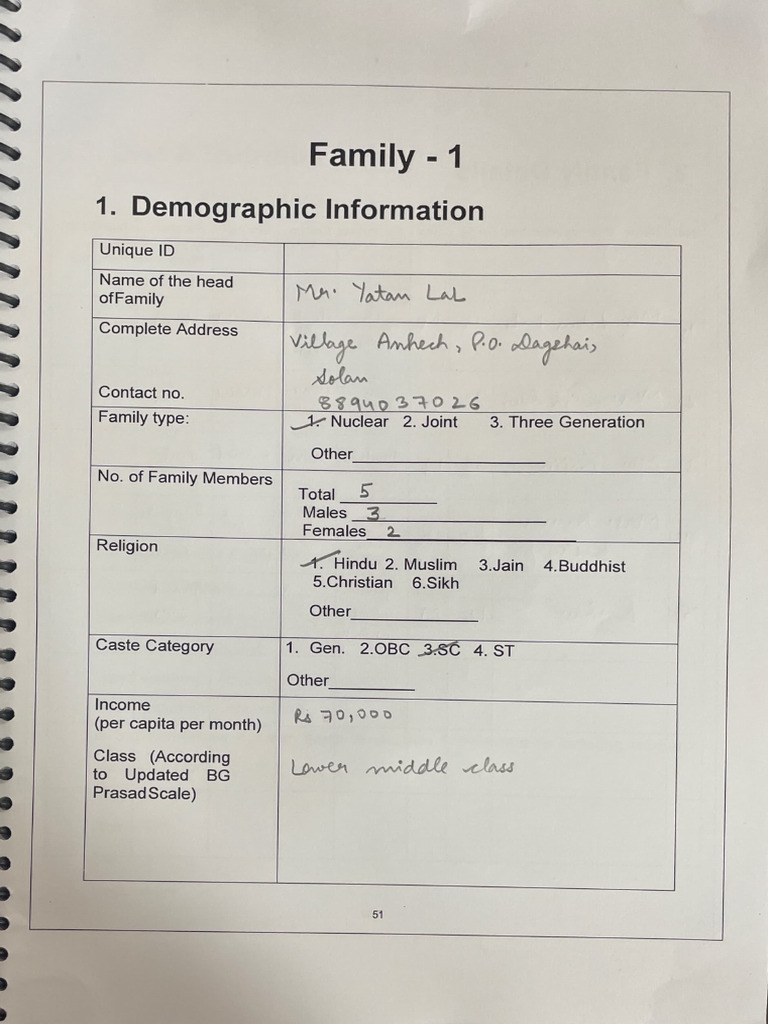 Family - 1
1. Demographic Information
Unique ID
Name of the head
ofFamily
Mr. Yatan Lal
Complete Address
Village Anhech, P.O. Dagshai,
Solan
Contact no.
8894037026
Family type:
1. Nuclear 2. Joint 3. Three Generation
Other
No. of Family Members
Total 5
Males 3
Females 2
Religion
1. Hindu 2. Muslim 3.Jain 4.Buddhist
5.Christian 6.Sikh
Other
Caste Category
1. Gen. 2.OBC 3.SC 4. ST
Other
Income
(per capita per month)
Rs 70,000
Class (According
to Updated BG
PrasadScale)
Lower middle class
51